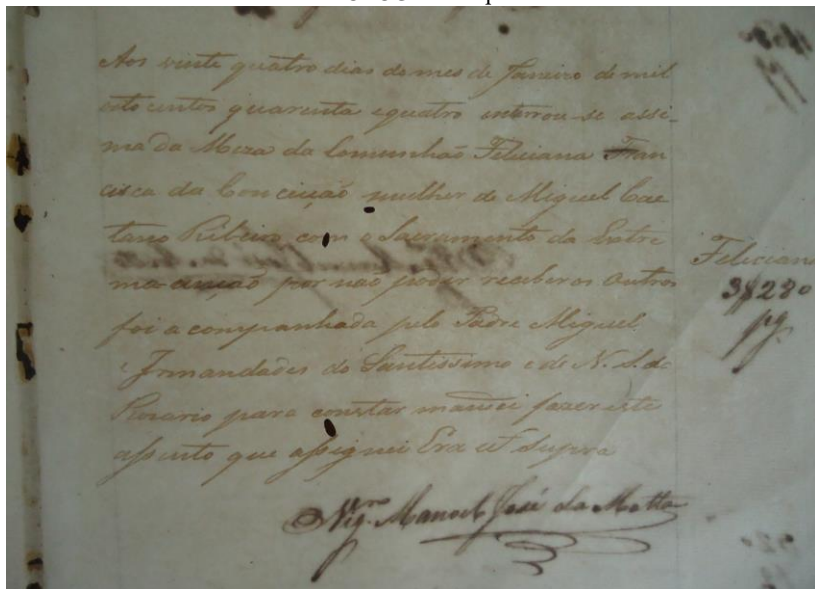 Aos vinte quatro dias do mes de Janeiro de mil
oito centos quarenta e quatro enterrou-se assi-
ma da Meza da Comunhaõ Feliciana Fran
cisca da Conceiçaõ mulher de Miguel Cae
tano Ribeiro com o Sacramento da Extre
ma-unçaõ por naõ poder receber os outros
foi acompanhada pelo Padre Miguel
e Irmandades do Santissimo e de N. S. do
Rosario para constar mandei fazer este
assento que assignei Era ut supra
Vigro. Manoel José da Motta
Feliciana
3$280
pg.